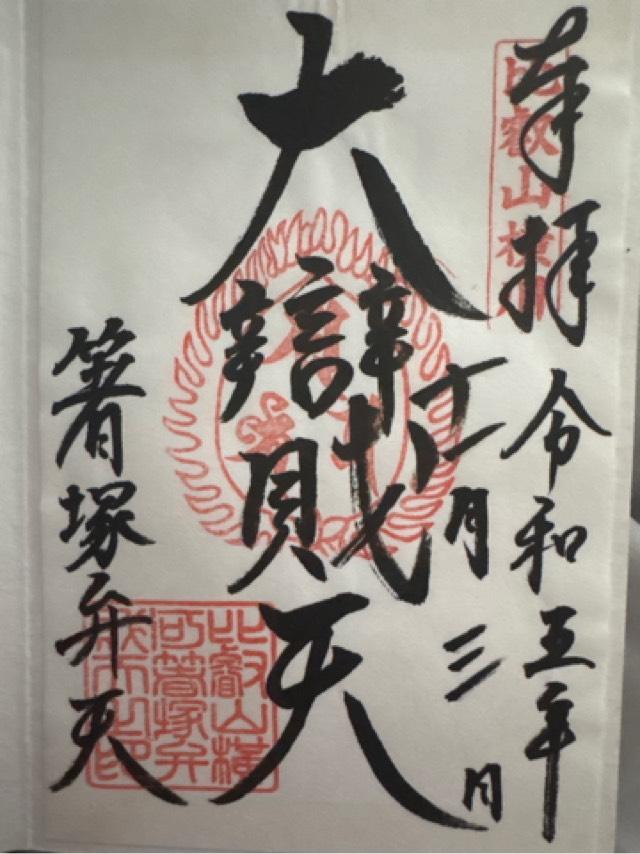 奉拝
比叡山横川
令和五年
十一月三日
大辯財天
箸塚弁天
比叡山横
川箸塚弁